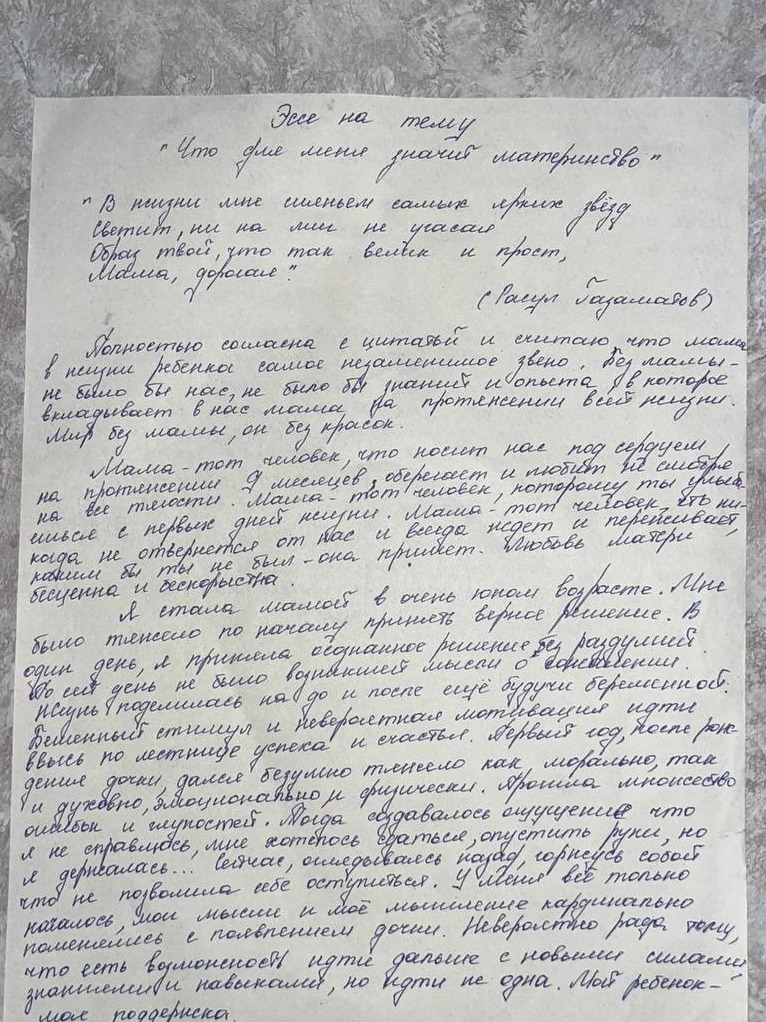 Эссе на тему
"Что для меня значит материнство"
"В жизни мне сияньем самых ярких звёзд
Светит, ни на миг не угасая
Образ твой, что так велик и прост,
Мама, дорогая".
(Расул Газаматов)
Полностью согласна с цитатой и считаю, что мама
в жизни ребенка самое незаменимое звено. Без мамы -
не было бы нас, не было бы знаний и опыта, в которое
вкладывает в нас мама на протяжении всей жизни.
Мир без мамы, он без красок.
Мама - тот человек, что носит нас под сердцем
на протяжении 9 месяцев, оберегает и любит не смотря
на все тягости. Мама - тот человек, которому ты улыба-
ешься с первых дней жизни. Мама - тот человек, что ни-
когда не отвернется от нас и всегда ждет и переживает,
каким бы ты не был - она примет. Любовь матери
бесценна и бескорыстна.
Я стала мамой в очень юном возрасте. Мне
было тяжело по началу принять верное решение. В
один день, я приняла осознанное решение без раздумий.
По сей день не было возникшей мысли о сожалении.
Жизнь поделилась на до и после ещё будучи беременной.
Бешенный стимул и невероятная мотивация идти
ввысь по лестнице успеха и счастья. Первый год, после рож-
дения дочки, дался безумно тяжело как морально, так
и духовно, эмоционально и физически. Прошла множество
ошибок и глупостей. Тогда создавалось ощущение что
я не справлюсь, мне хотелось сдаться, опустить руки, но
я держалась... Сейчас, оглядываясь назад, горжусь собой
что не позволила себе оступиться. У меня всё только
началось, мои мысли и моё мышление кардинально
поменялись с появлением дочки. Невероятно рада тому,
что есть возможность идти дальше с новыми силами,
знаниями и навыками, но идти не одна. Мой ребенок -
моя поддержка.